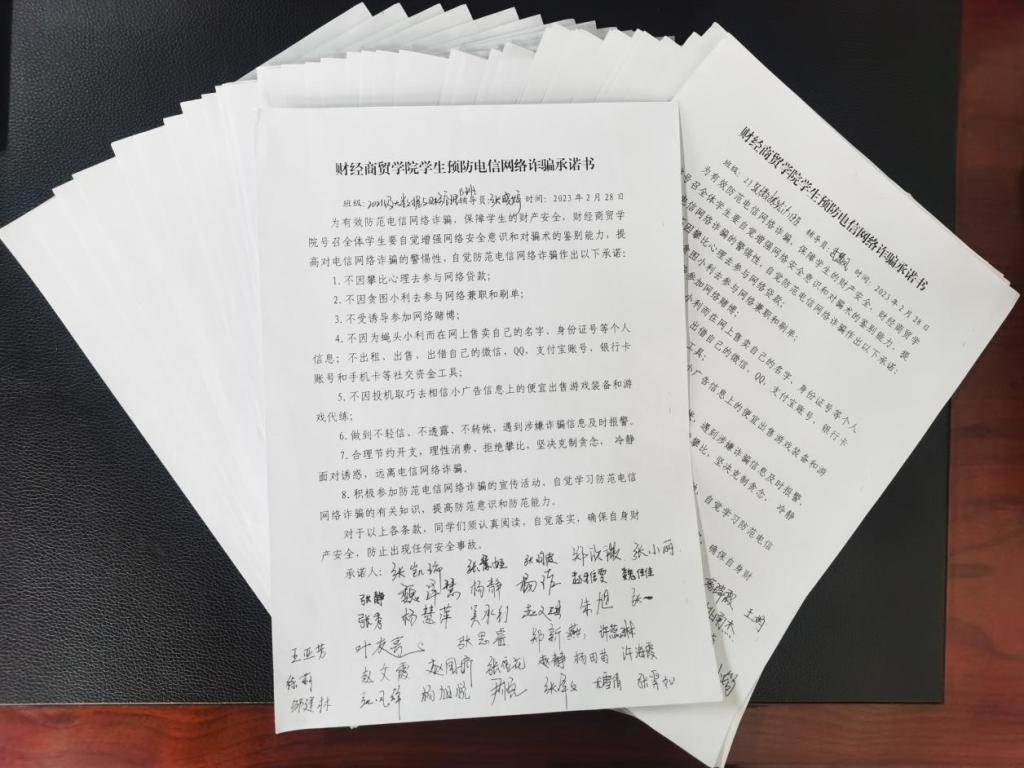 财经商贸学院学生预防电信网络诈骗承诺书
班级: 辅导员: 时间: 2023年2月28日
为有效防范电信网络诈骗，保障学生的财产安全，财经商贸学
院号召全体学生要自觉增强网络安全意识和对骗术的鉴别能力，提
高对电信网络诈骗的警惕性，自觉防范电信网络诈骗作出以下承诺:
1.不因攀比心理去参与网络贷款;
2.不因贪图小利去参与网络兼职和刷单;
3.不受诱导参加网络赌博;
4.不因为蝇头小利而在网上售卖自己的名字、身份证号等个人
信息; 不出租、出售、出借自己的微信、QQ、支付宝账号、银行卡
账号和手机卡等社交资金工具;
5.不因投机取巧去相信小广告信息上的便宜出售游戏装备和游
戏代练;
6.做到不轻信、不透露、不转帐，遇到涉嫌诈骗信息及时报警。
7.合理节约开支，理性消费、拒绝攀比，坚决克制贪念， 冷静
面对诱惑，远离电信网络诈骗。
8.积极参加防范电信网络诈骗的宣传活动，自觉学习防范电信
网络诈骗的有关知识，提高防范意识和防范能力。
对于以上各条款，同学们须认真阅读，自觉落实，确保自身财
产安全，防止出现任何安全事故。
承诺人: 张小丽
张静 杨静 杨洁
张秀 杨慧萍 吴永利 朱旭 张一
王亚芳 张思睿 郑新燕
徐莉 赵文霞 张雪花 杨田苗 许海霞
杨旭悦
财经商贸学院学生预防电信网络诈骗承诺书
班级: 辅导员: 时间: 2023年2月28日
为有效防范电信网络诈骗，保障学生的财产安全，财经商贸学
号召全体学生要自觉增强网络安全意识和对骗术的鉴别能力，提
电信网络诈骗的警惕性，自觉防范电信网络诈骗作出以下承诺:
因攀比心理去参与网络贷款;
图小利去参与网络兼职和刷单;
参加网络赌博;
小利而在网上售卖自己的名字、身份证号等个人
出借自己的微信、QQ、支付宝账号、银行卡
工具;
小广告信息上的便宜出售游戏装备和游
遇到涉嫌诈骗信息及时报警。
攀比，坚决克制贪念， 冷静
自觉学习防范电信
确保自身财